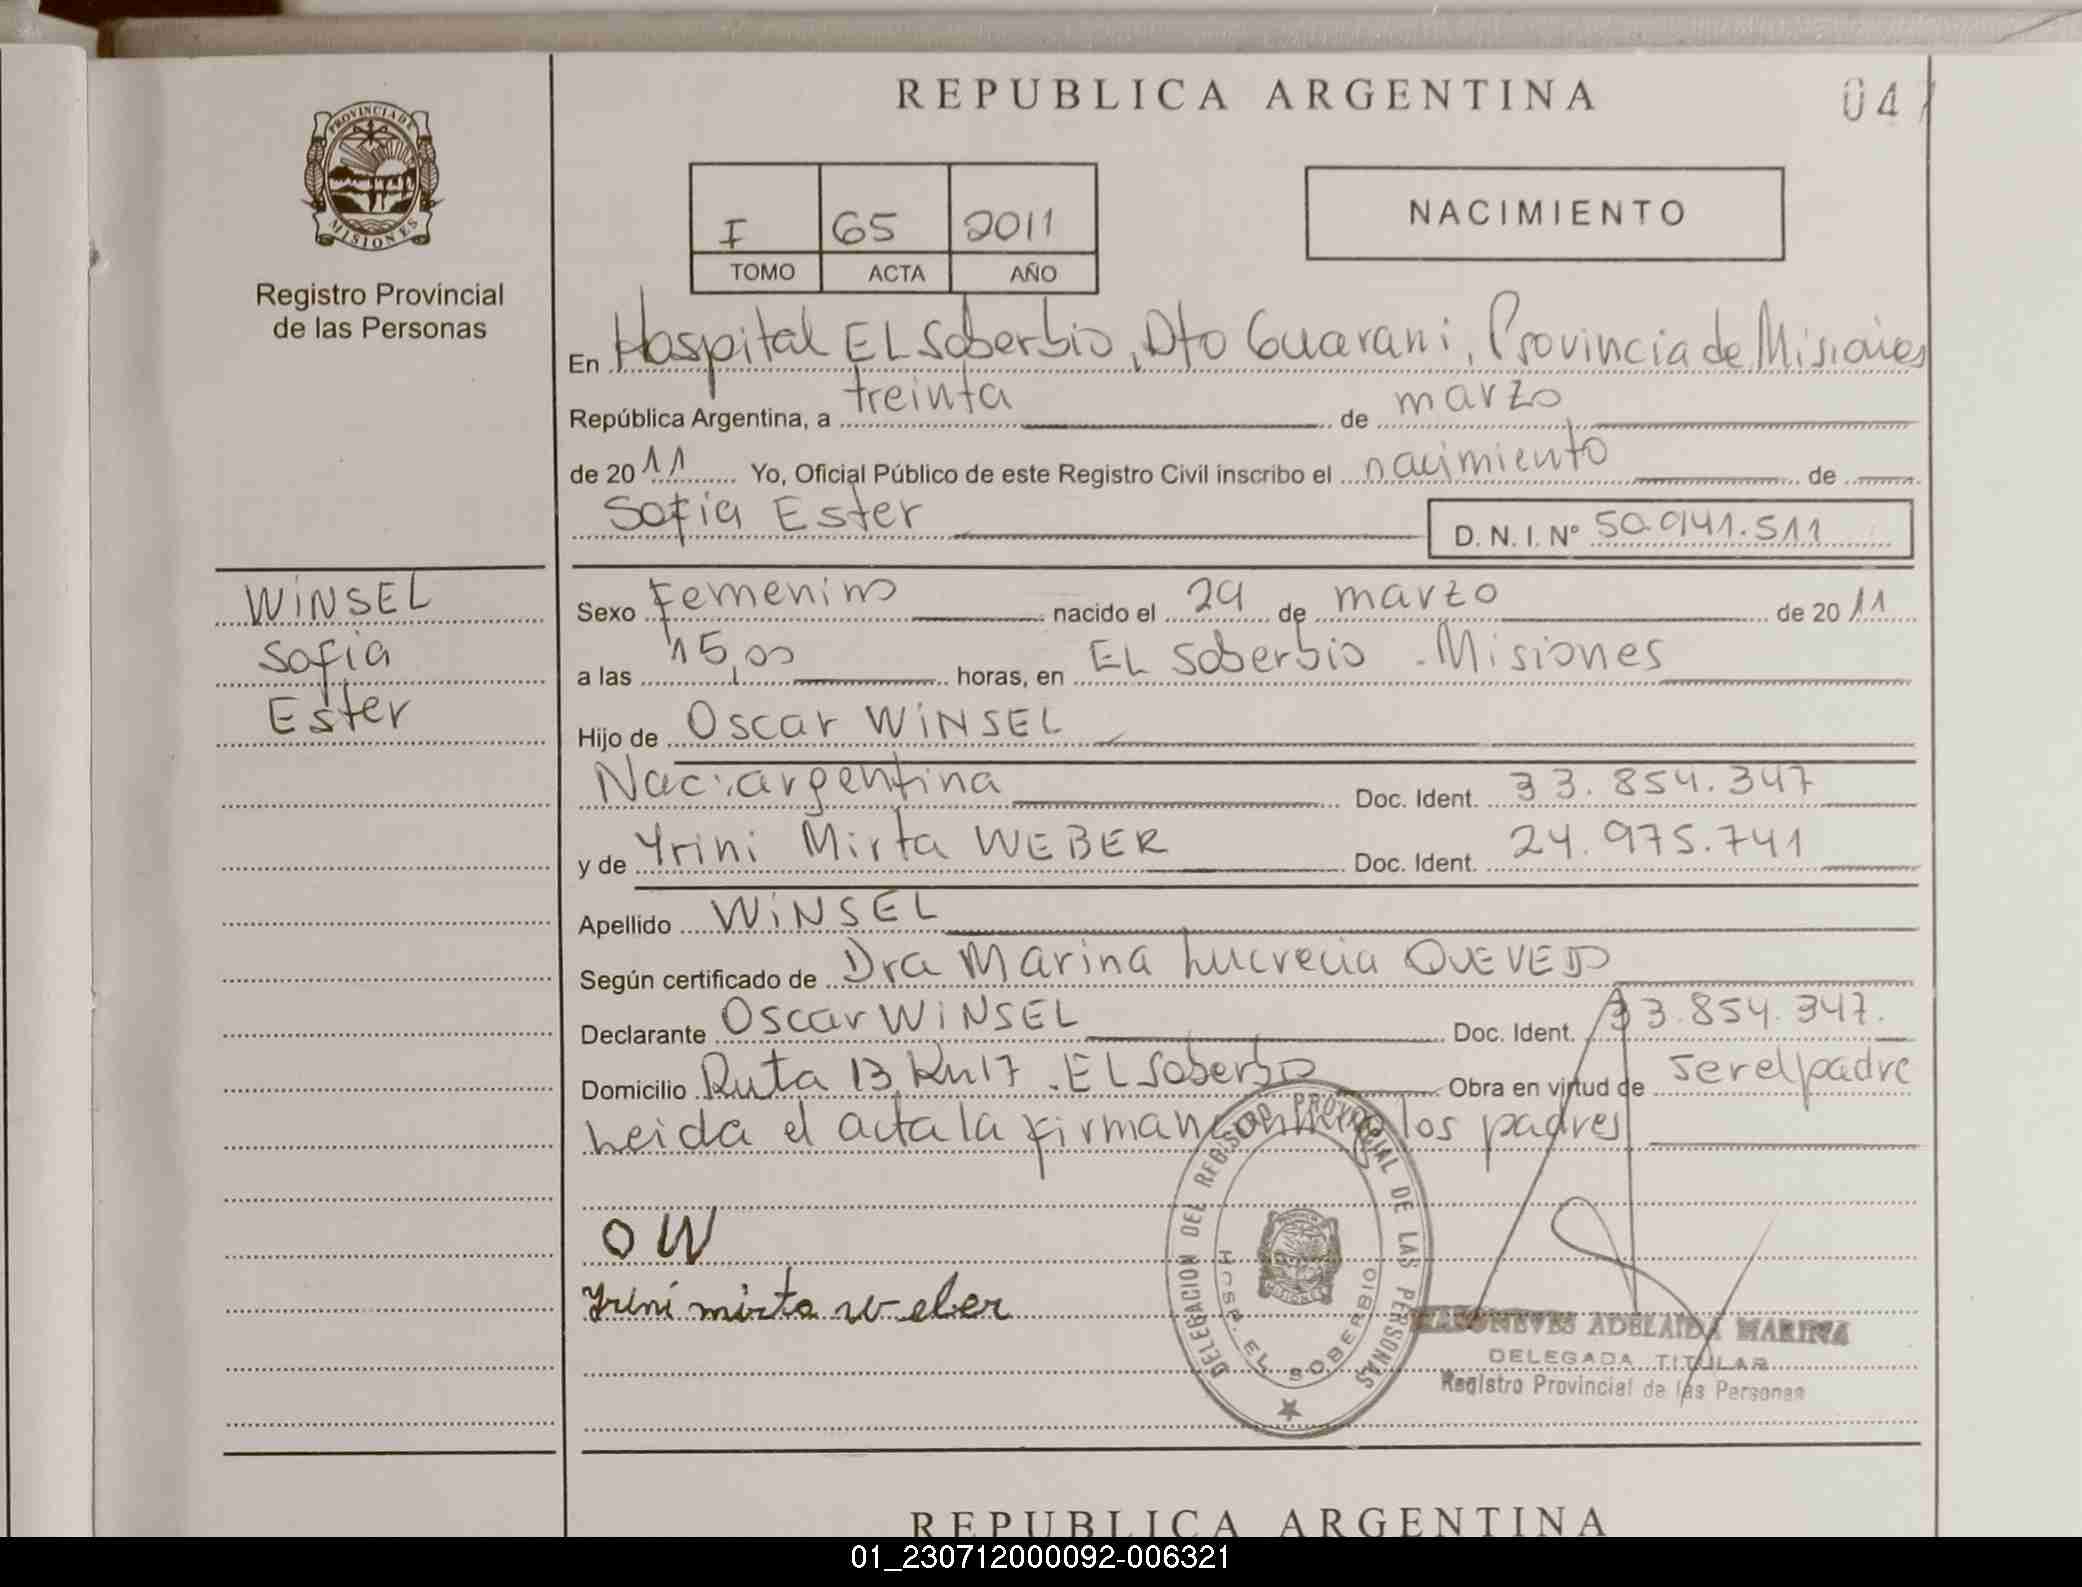 REPUBLICA ARGENTINA
04
PROVINCIA DE
MISIONES
Registro Provincial
de las Personas
I 65 2011
TOMO ACTA AÑO
NACIMIENTO
En Hospital EL Soberbio, Dto Guarani, Provincia de Misiones
República Argentina, a treinta de marzo
de 2011 Yo, Oficial Público de este Registro Civil inscribo el nacimiento de
Sofia Ester D. N. I. Nº 50.941.511
WiNSEL
Sofia
Ester
Sexo Femenino nacido el 29 de marzo de 2011
a las 15,00 horas, en EL Soberbio - Misiones
Hijo de Oscar WiNSEL
Nac: argentina Doc. Ident. 33.854.347
y de Yrini Mirta WEBER Doc. Ident. 24.975.741
Apellido WiNSEL
Según certificado de Dra Marina Lucrecia QUEVEDO
Declarante Oscar WiNSEL Doc. Ident. 33.854.347.
Domicilio Ruta 13 Km17 . EL Soberbio Obra en virtud de ser el padre
Leida el acta la firman conmigo los padres
O W
Yrini mirta weber
DELEGACION DEL REGISTRO PROVINCIAL DE LAS PERSONAS
HOSP. EL SOBERBIO
ADELAIDA MARINA
DELEGADA TITULAR
Registro Provincial de las Personas
REPUBLICA ARGENTINA
01_230712000092-006321